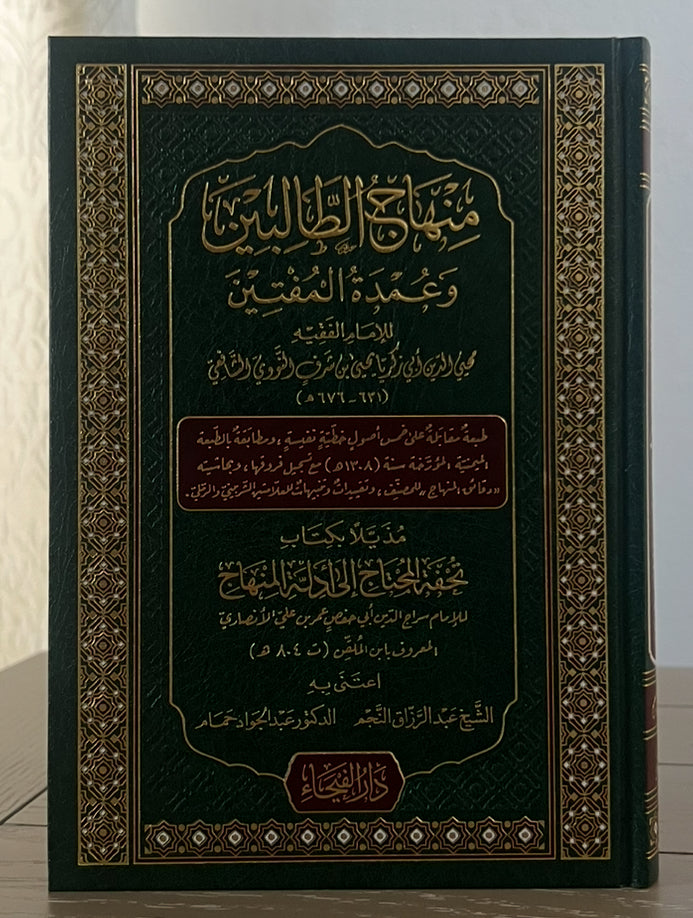 مِنْهَاجُ الطَّالِبِينَ
وَعُمْدَةُ المُفْتِينَ
للإمَامِ الفَقِيهِ
محيي الدين أبي زكريا يحيى بن شرف النَّووي الشافعي
(٦٣١ - ٦٧٦ هـ)
طبعةٌ مقابلةٌ على خمس أصولٍ خطيّةٍ نفيسةٍ، ومطابقةٌ بالطبعة
الميمنية المؤرّخة سنة (١٣٠٨هـ) مع تسجيل فروقها، وبحاشيته
«دقائق المنهاج» للمصنّف، وتقييداتٌ وتنبيهاتٌ للعلامتين الشربيني والرملي.
مُذَيَّلاً بكِتَابِ
تُحْفَة المُحْتَاج إلى أَدِلَّة المِنْهَاج
للإمام سراج الدين أبي حفص عمر بن علي الأنصاري
المعروف بابن المُلقِّن (ت ٨٠٤ هـ)
اعتَنَى بِهِ
الشَّيخ عَبد الرَّزاق النَّجم الدكتور عَبد الجواد حَمَام
دَارُ الفَيْحَاء